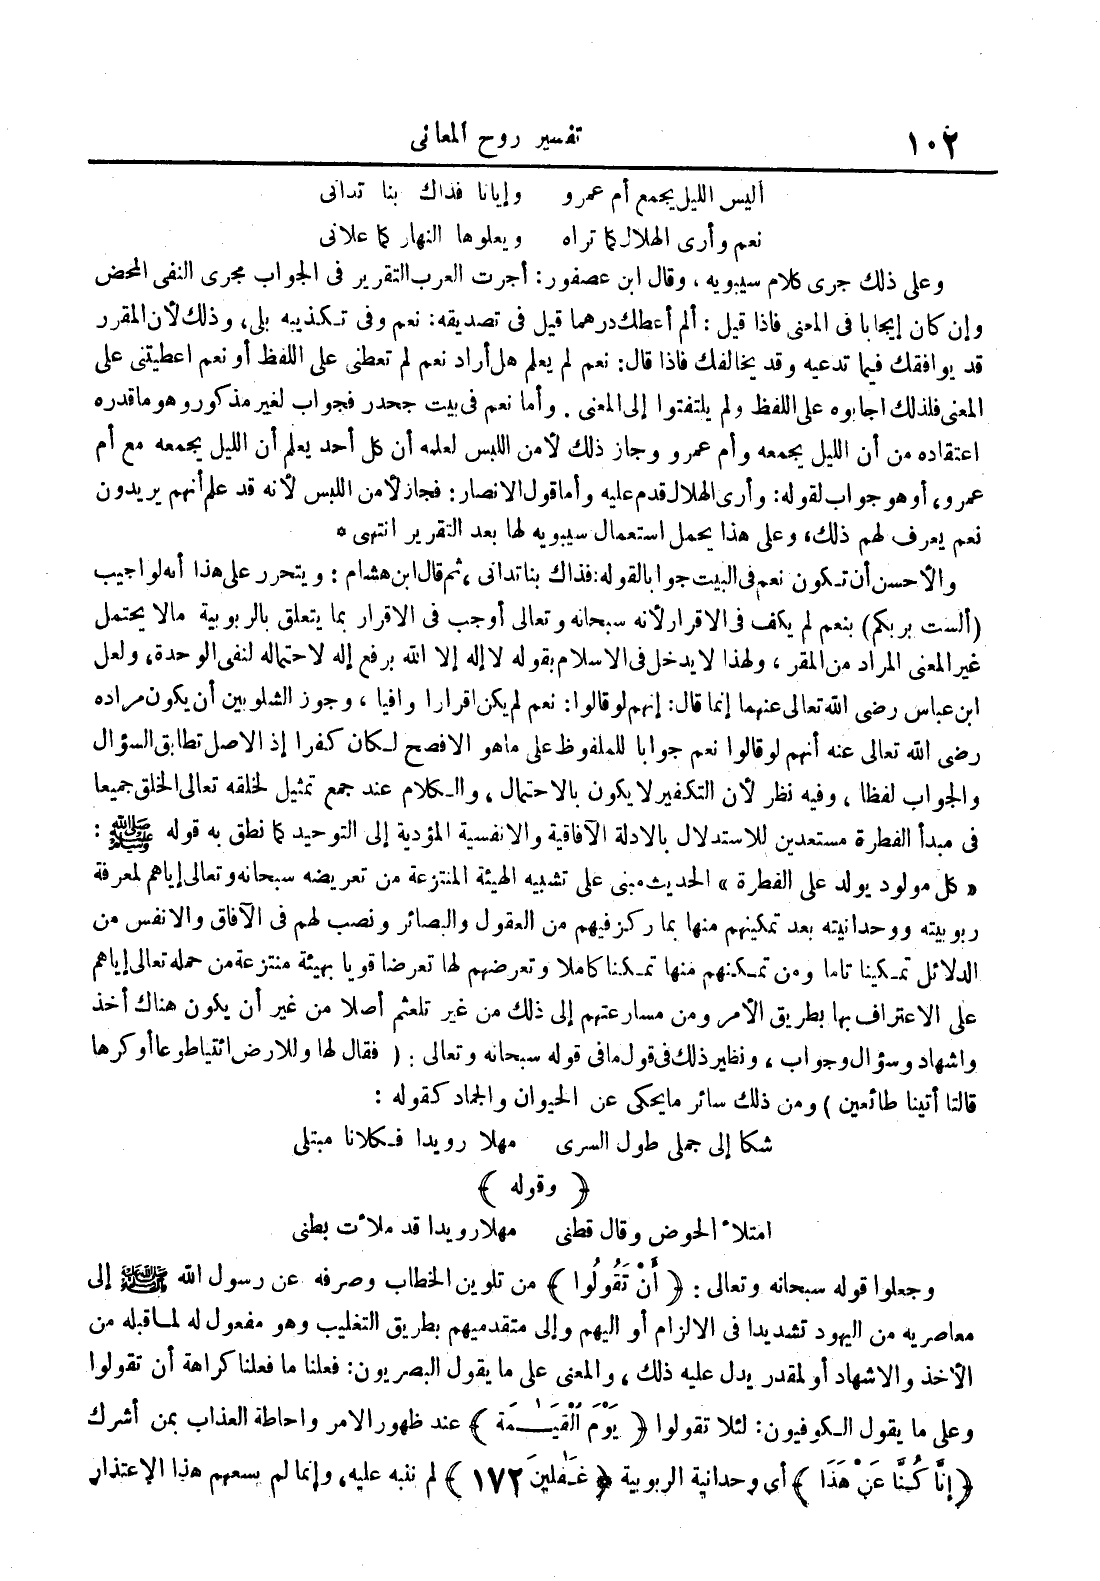 ١٠٢ تفسير روح المعانى
أليس الليل يجمع أم عمرو وإيانا فذاك بنا تدانى
نعم وأرى الهلال كما تراه ويعلوها النهار كما علانى
وعلى ذلك جرى كلام سيبويه ، وقال ابن عصفور: أجرت العرب التقرير فى الجواب مجرى النفى المحض
وإن كان إيجابا فى المعنى فاذا قيل : ألم أعطك درهما قيل فى تصديقه: نعم وفى تكذيبه بلى، وذلك لأن المقرر
قد يوافقك فيما تدعيه وقد يخالفك فاذا قال: نعم لم يعلم هل أراد نعم لم تعطنى على اللفظ أو نعم اعطيتنى على
المعنى فلذلك اجابوه على اللفظ ولم يلتفتوا إلى المعنى . وأما نعم فى بيت جحدر فجواب لغير مذكور وهو ماقدره
اعتقاده من أن الليل يجمعه وأم عمرو وجاز ذلك لأمن اللبس لعلمه أن كل أحد يعلم أن الليل يجمعه مع أم
عمرو، أو هو جواب لقوله: وأرى الهلال قدم عليه وأما قول الانصار: فجاز لأمن اللبس لأنه قد علم أنهم يريدون
نعم يعرف لهم ذلك، وعلى هذا يحمل استعمال سيبويه لها بعد التقرير انتهى *
والأحسن أن تكون نعم فى البيت جوابا لقوله: فذاك بنا تدانى ، ثم قال ابن هشام : ويتحرر على هذا أنه لو اجيب
(ألست بربكم) بنعم لم يكف فى الاقرار لأنه سبحانه وتعالى أوجب فى الاقرار بما يتعلق بالربوبية مالا يحتمل
غير المعنى المراد من المقر ، ولهذا لا يدخل فى الاسلام بقوله لا إله إلا الله برفع إله لاحتماله لنفى الوحدة، ولعل
ابن عباس رضى الله تعالى عنهما إنما قال: إنهم لو قالوا: نعم لم يكن اقرارا وافيا ، وجوز الشلوبين أن يكون مراده
رضى الله تعالى عنه أنهم لو قالوا نعم جوابا للملفوظ على ماهو الافصح لكان كفرا إذ الاصل تطابق السؤال
والجواب لفظا ، وفيه نظر لأن التكفير لا يكون بالاحتمال ، والكلام عند جمع تمثيل لخلقه تعالى الخلق جميعا
فى مبدأ الفطرة مستعدين للاستدلال بالادلة الآفاقية والانفسية المؤدية إلى التوحيد كما نطق به قوله ﷺ :
« كل مولود يولد على الفطرة » الحديث مبنى على تشبيه الهيئة المنتزعة من تعريضه سبحانه وتعالى إياهم لمعرفة
ربوبيته ووحدانيته بعد تمكينهم منها بما ركز فيهم من العقول والبصائر ونصب لهم فى الآفاق والانفس من
الدلائل تمكينا تاما ومن تمكنهم منها تمكنا كاملا وتعرضهم لها تعرضا قويا بهيئة منتزعة من حمله تعالى إياهم
على الاعتراف بها بطريق الأمر ومن مسارعتهم إلى ذلك من غير تلعثم أصلا من غير أن يكون هناك أخذ
واشهاد وسؤال وجواب ، ونظير ذلك فى قول مافى قوله سبحانه وتعالى : ( فقال لها وللارض ائتيا طوعا أو كرها
قالتا أتينا طائعين ) ومن ذلك سائر مايحكى عن الحيوان والجماد كقوله :
شكا إلى جملى طول السرى مهلا رويدا فكلانا مبتلى
﴿ وقوله ﴾
امتلأ الحوض وقال قطنى مهلا رويدا قد ملأت بطنى
وجعلوا قوله سبحانه وتعالى : ﴿ أَنْ تَقُولُوا ﴾ من تلوين الخطاب وصرفه عن رسول الله ﷺ إلى
معاصريه من اليهود تشديدا فى الالزام أو اليهم وإلى متقدميهم بطريق التغليب وهو مفعول له لماقبله من
الأخذ والاشهاد أو لمقدر يدل عليه ذلك ، والمعنى على ما يقول البصريون: فعلنا ما فعلنا كراهة أن تقولوا
وعلى ما يقول الكوفيون: لئلا تقولوا ﴿ يَوْمَ الْقِيَـٰمَة ﴾ عند ظهور الامر واحاطة العذاب بمن أشرك
﴿ إِنَّا كُنَّا عَنْ هَذَا ﴾ أى وحدانية الربوبية ﴿ غَـٰفلينَ ١٧٢ ﴾ لم ننبه عليه، وإنما لم يسعهم هذا الإعتذار